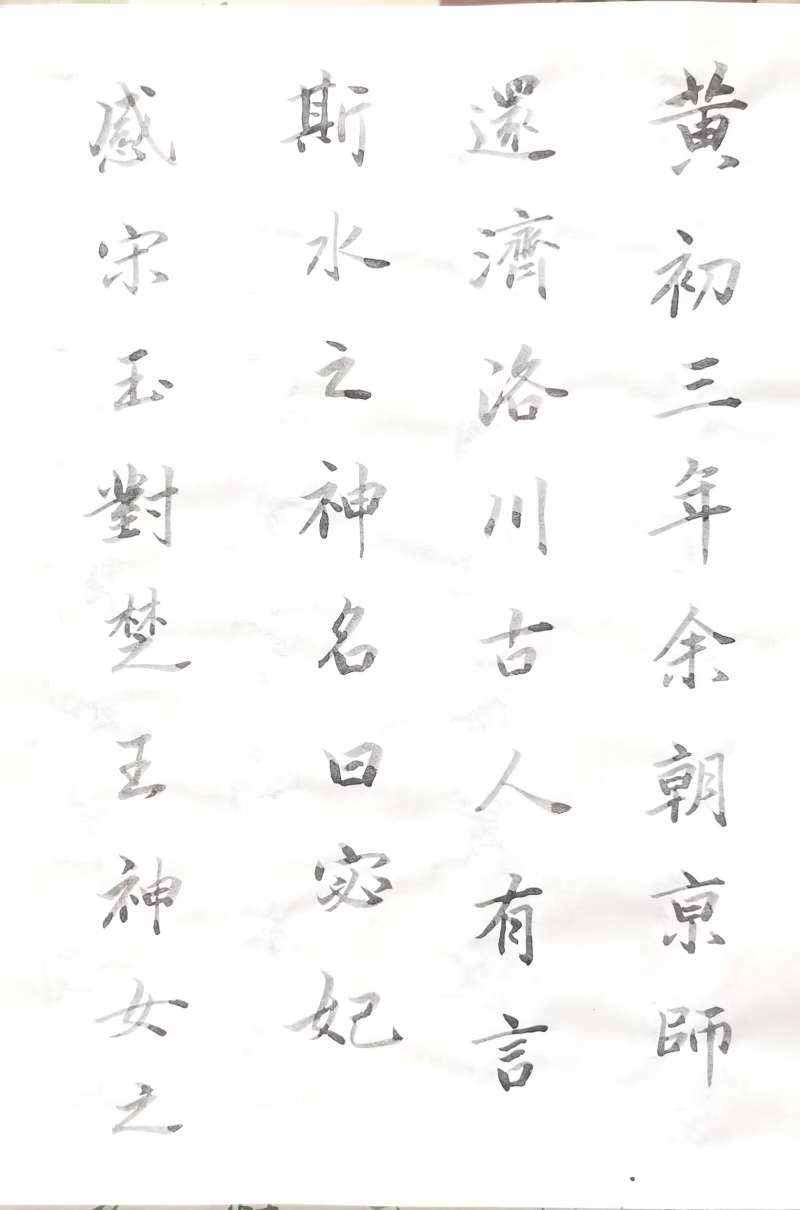 黄初三年余朝京師
還濟洛川古人有言
斯水之神名曰宓妃
感宋玉對楚王神女之